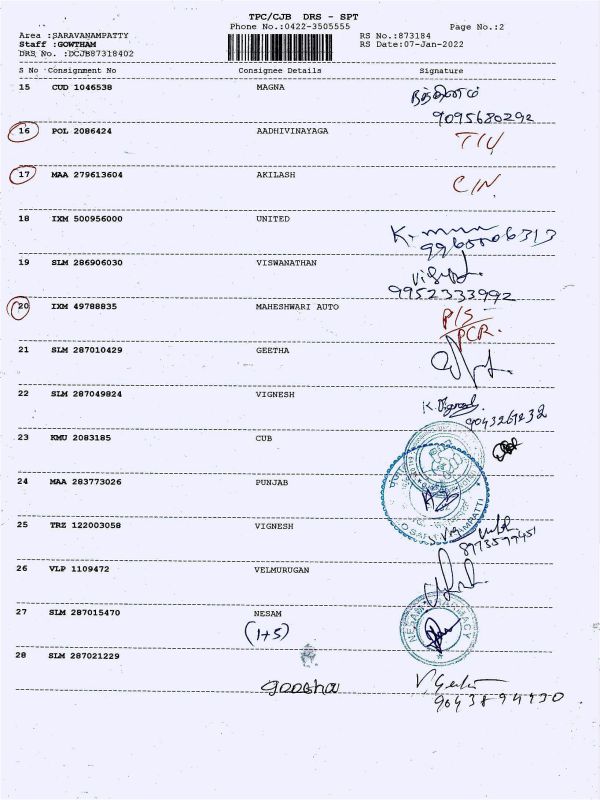 TPC/CJB DRS - SPT
Phone No.:0422-3505555 Page No.:2
Area :SARAVANAMPATTY RS No.:873184
Staff :GOWTHAM RS Date:07-Jan-2022
DRS No. :DCJB87318402
S No Consignment No Consignee Details Signature
15 CUD 1046538 MAGNA
9095680292
16 POL 2086424 AADHIVINAYAGA
17 MAA 279613604 AKILASH
18 IXM 500956000 UNITED
19 SLM 286906030 VISWANATHAN
9952333992
20 IXM 49788835 MAHESHWARI AUTO P/S
PCR.
21 SLM 287010429 GEETHA
22 SLM 287049824 VIGNESH
23 KMU 2083185 CUB
24 MAA 283773026 PUNJAB
25 TRZ 122003058 VIGNESH
26 VLP 1109472 VELMURUGAN
27 SLM 287015470 NESAM
(1+5)
NESAM PHARMACY
28 SLM 287021229
geetha
9043894430